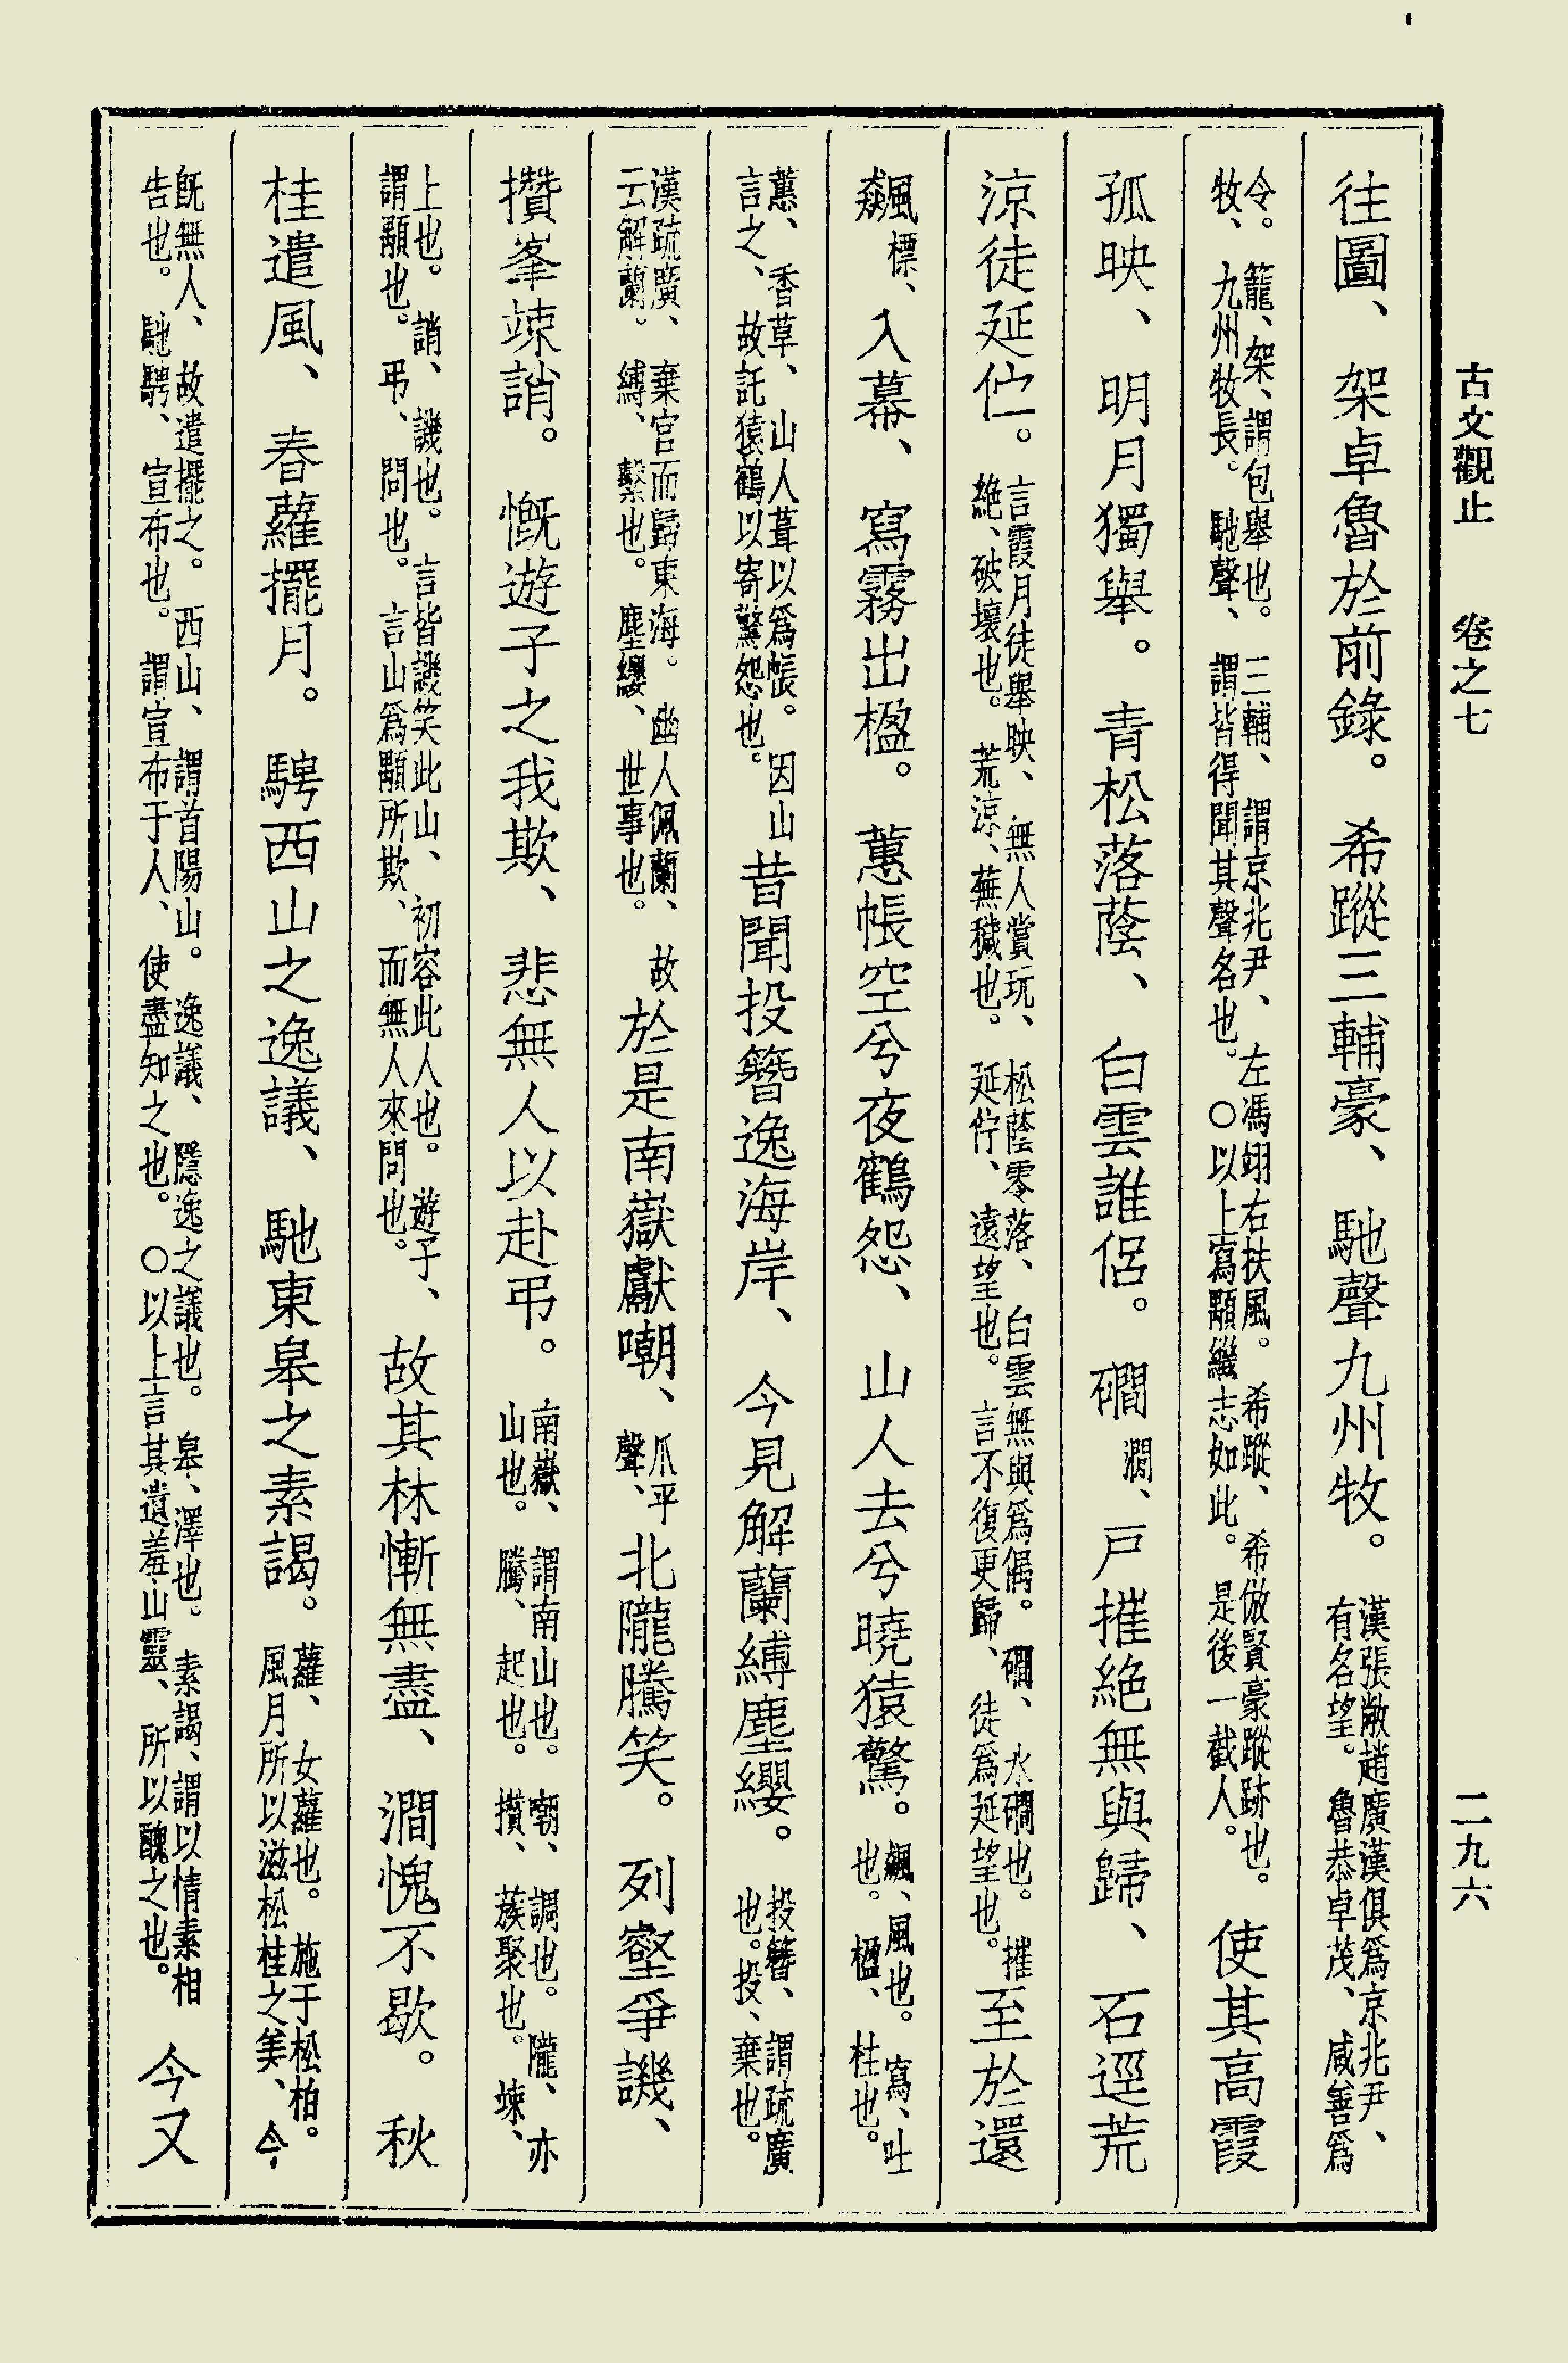 古文觀止　卷之七　二九六
往圖、架卓魯於前錄。希蹤三輔豪、馳聲九州牧。漢張敞趙廣漢俱爲京兆尹、有名望。魯恭卓茂、咸善爲
令。籠、架、謂包舉也。三輔、謂京兆尹、左馮翊右扶風。希蹤、希倣賢豪蹤跡也。牧、九州牧長。馳聲、謂皆得聞其聲名也。○以上寫顒繼志如此。是後一截人。使其高霞
孤映、明月獨舉。青松落蔭、白雲誰侶。磵澗、戸摧絕無與歸、石逕荒
涼徒延佇。言霞月徒舉映、無人賞玩、松蔭零落、白雲無與爲偶。磵、水磵也。摧絕、破壞也。荒涼、蕪穢也。延佇、遠望也。言不復更歸、徒爲延望也。至於還
飆標、入幕、寫霧出楹。蕙帳空兮夜鶴怨、山人去兮曉猿驚。飆、風也。寫、吐也。楹、柱也。
蕙、香草、山人葺以爲帳。因山言之、故託猿鶴以寄驚怨也。昔聞投簪逸海岸、今見解蘭縛塵纓。投簪、謂疏廣也。投、棄也。
漢疏廣、棄官而歸東海。幽人佩蘭、故云解蘭。縛、繫也。塵纓、世事也。於是南嶽獻嘲、爪平聲、北隴騰笑。列壑爭譏、
攢峯竦誚。慨遊子之我欺、悲無人以赴弔。南嶽、謂南山也。嘲、調也。隴、亦山也。騰、起也。攢、蔟聚也。竦、
上也。誚、譏也。言皆譏笑此山、初容此人也。遊子、謂顒也。弔、問也。言山爲顒所欺、而無人來問也。故其林慚無盡、澗愧不歇。秋
桂遣風、春蘿擺月。騁西山之逸議、馳東皋之素謁。蘿、女蘿也。施于松柏。風月所以滋松桂之美、今
既無人、故遣擺之。西山、謂首陽山。逸議、隱逸之議也。皋、澤也。素謁、謂以情素相告也。馳騁、宣布也。謂宣布于人、使盡知之也。○以上言其遺羞山靈、所以醜之也。今又